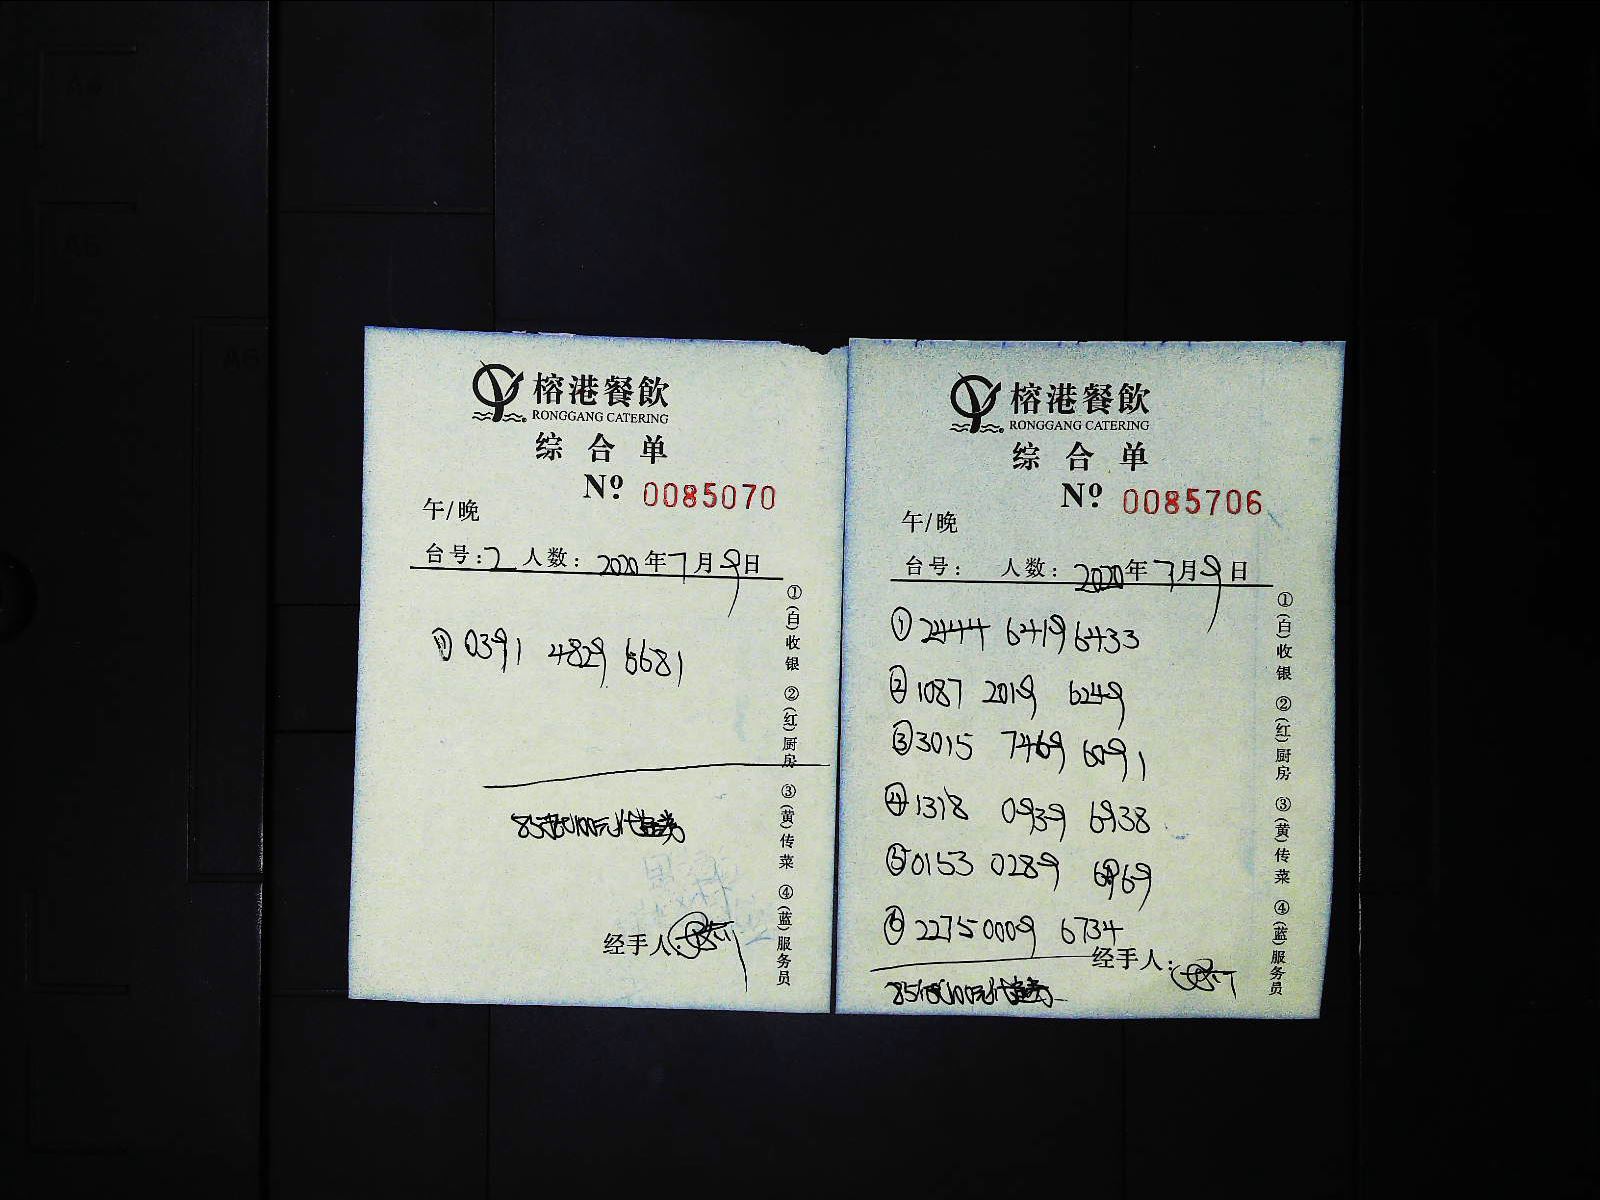 榕港餐飲
RONGGANG CATERING
综合单
Nº 0085070
午/晚
台号:2 人数: 2020年7月9日
① 0391 4829 6681
经手人:
①(白)收银 ②(红)厨房 ③(黄)传菜 ④(蓝)服务员
榕港餐飲
RONGGANG CATERING
综合单
Nº 0085706
午/晚
台号: 人数: 2020年7月9日
① 2444 6419 6433
② 1087 2019 6249
③ 3015 7469 6091
④ 1318 0939 6938
⑤ 0153 0289 6969
⑥ 2275 0009 6734
经手人:
①(白)收银 ②(红)厨房 ③(黄)传菜 ④(蓝)服务员
A6